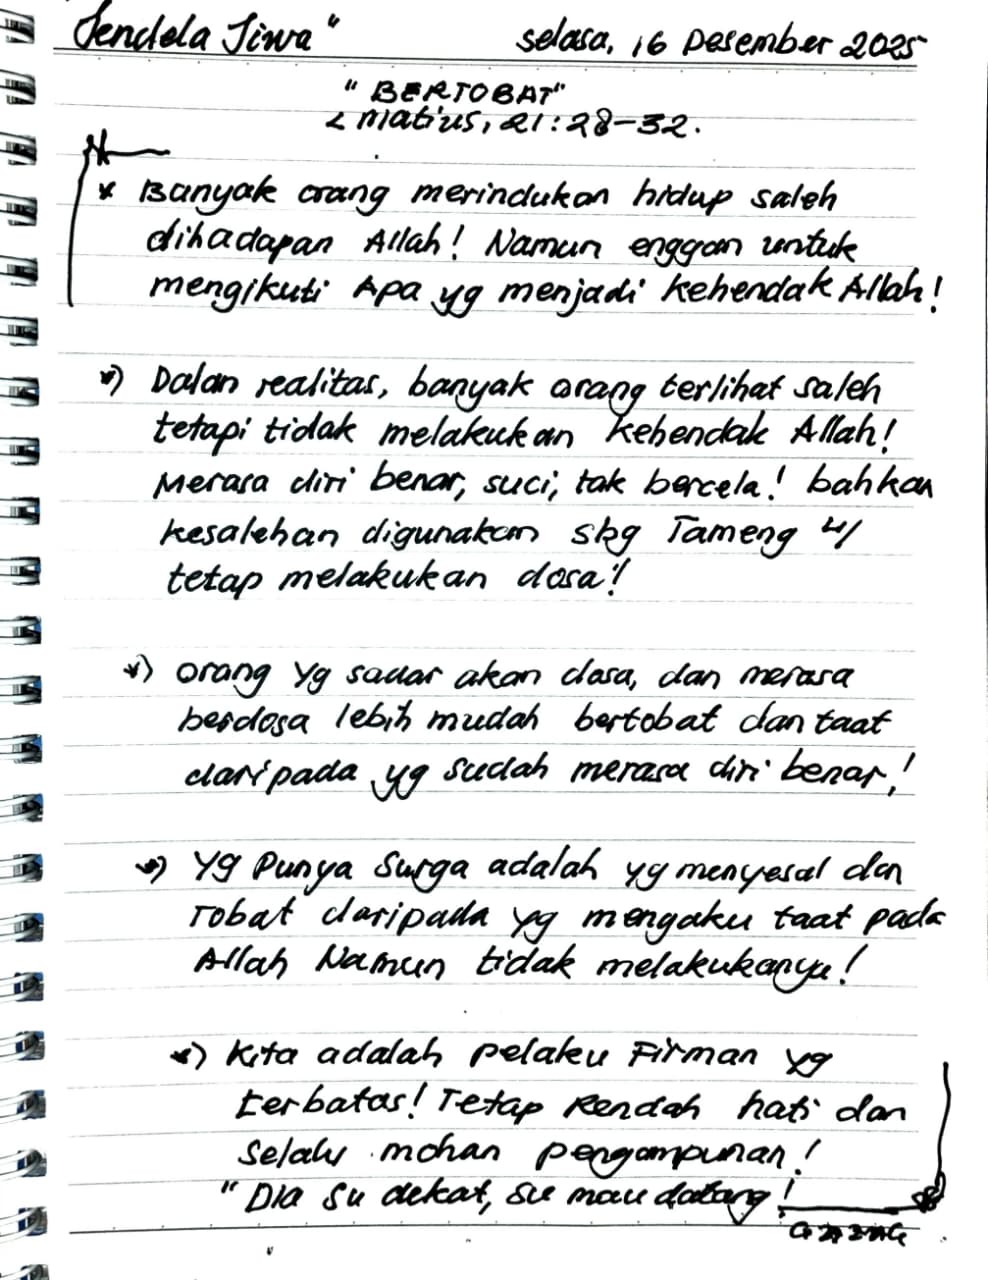 "Jendela Jiwa"
Selasa, 16 Desember 2025
"BERTOBAT"
< Matius, 21:28-32.
* Banyak orang merindukan hidup saleh
dihadapan Allah! Namun enggan untuk
mengikuti Apa yg menjadi kehendak Allah!
*) Dalan realitas, banyak orang terlihat saleh
tetapi tidak melakukan kehendak Allah!
Merasa diri benar, suci, tak bercela! bahkan
kesalehan digunakan sbg Tameng u/
tetap melakukan dosa!
*) orang yg sadar akan dosa, dan merasa
berdosa lebih mudah bertobat dan taat
daripada yg sudah merasa diri benar,!
*) Yg Punya Surga adalah yg menyesal dan
Tobat daripada yg mengaku taat pada
Allah Namun tidak melakukanya!
*) Kita adalah pelaku Firman yg
terbatas! Tetap Rendah hati dan
Selalu mohon pengampunan!
"Dia su dekat, su mau datang!